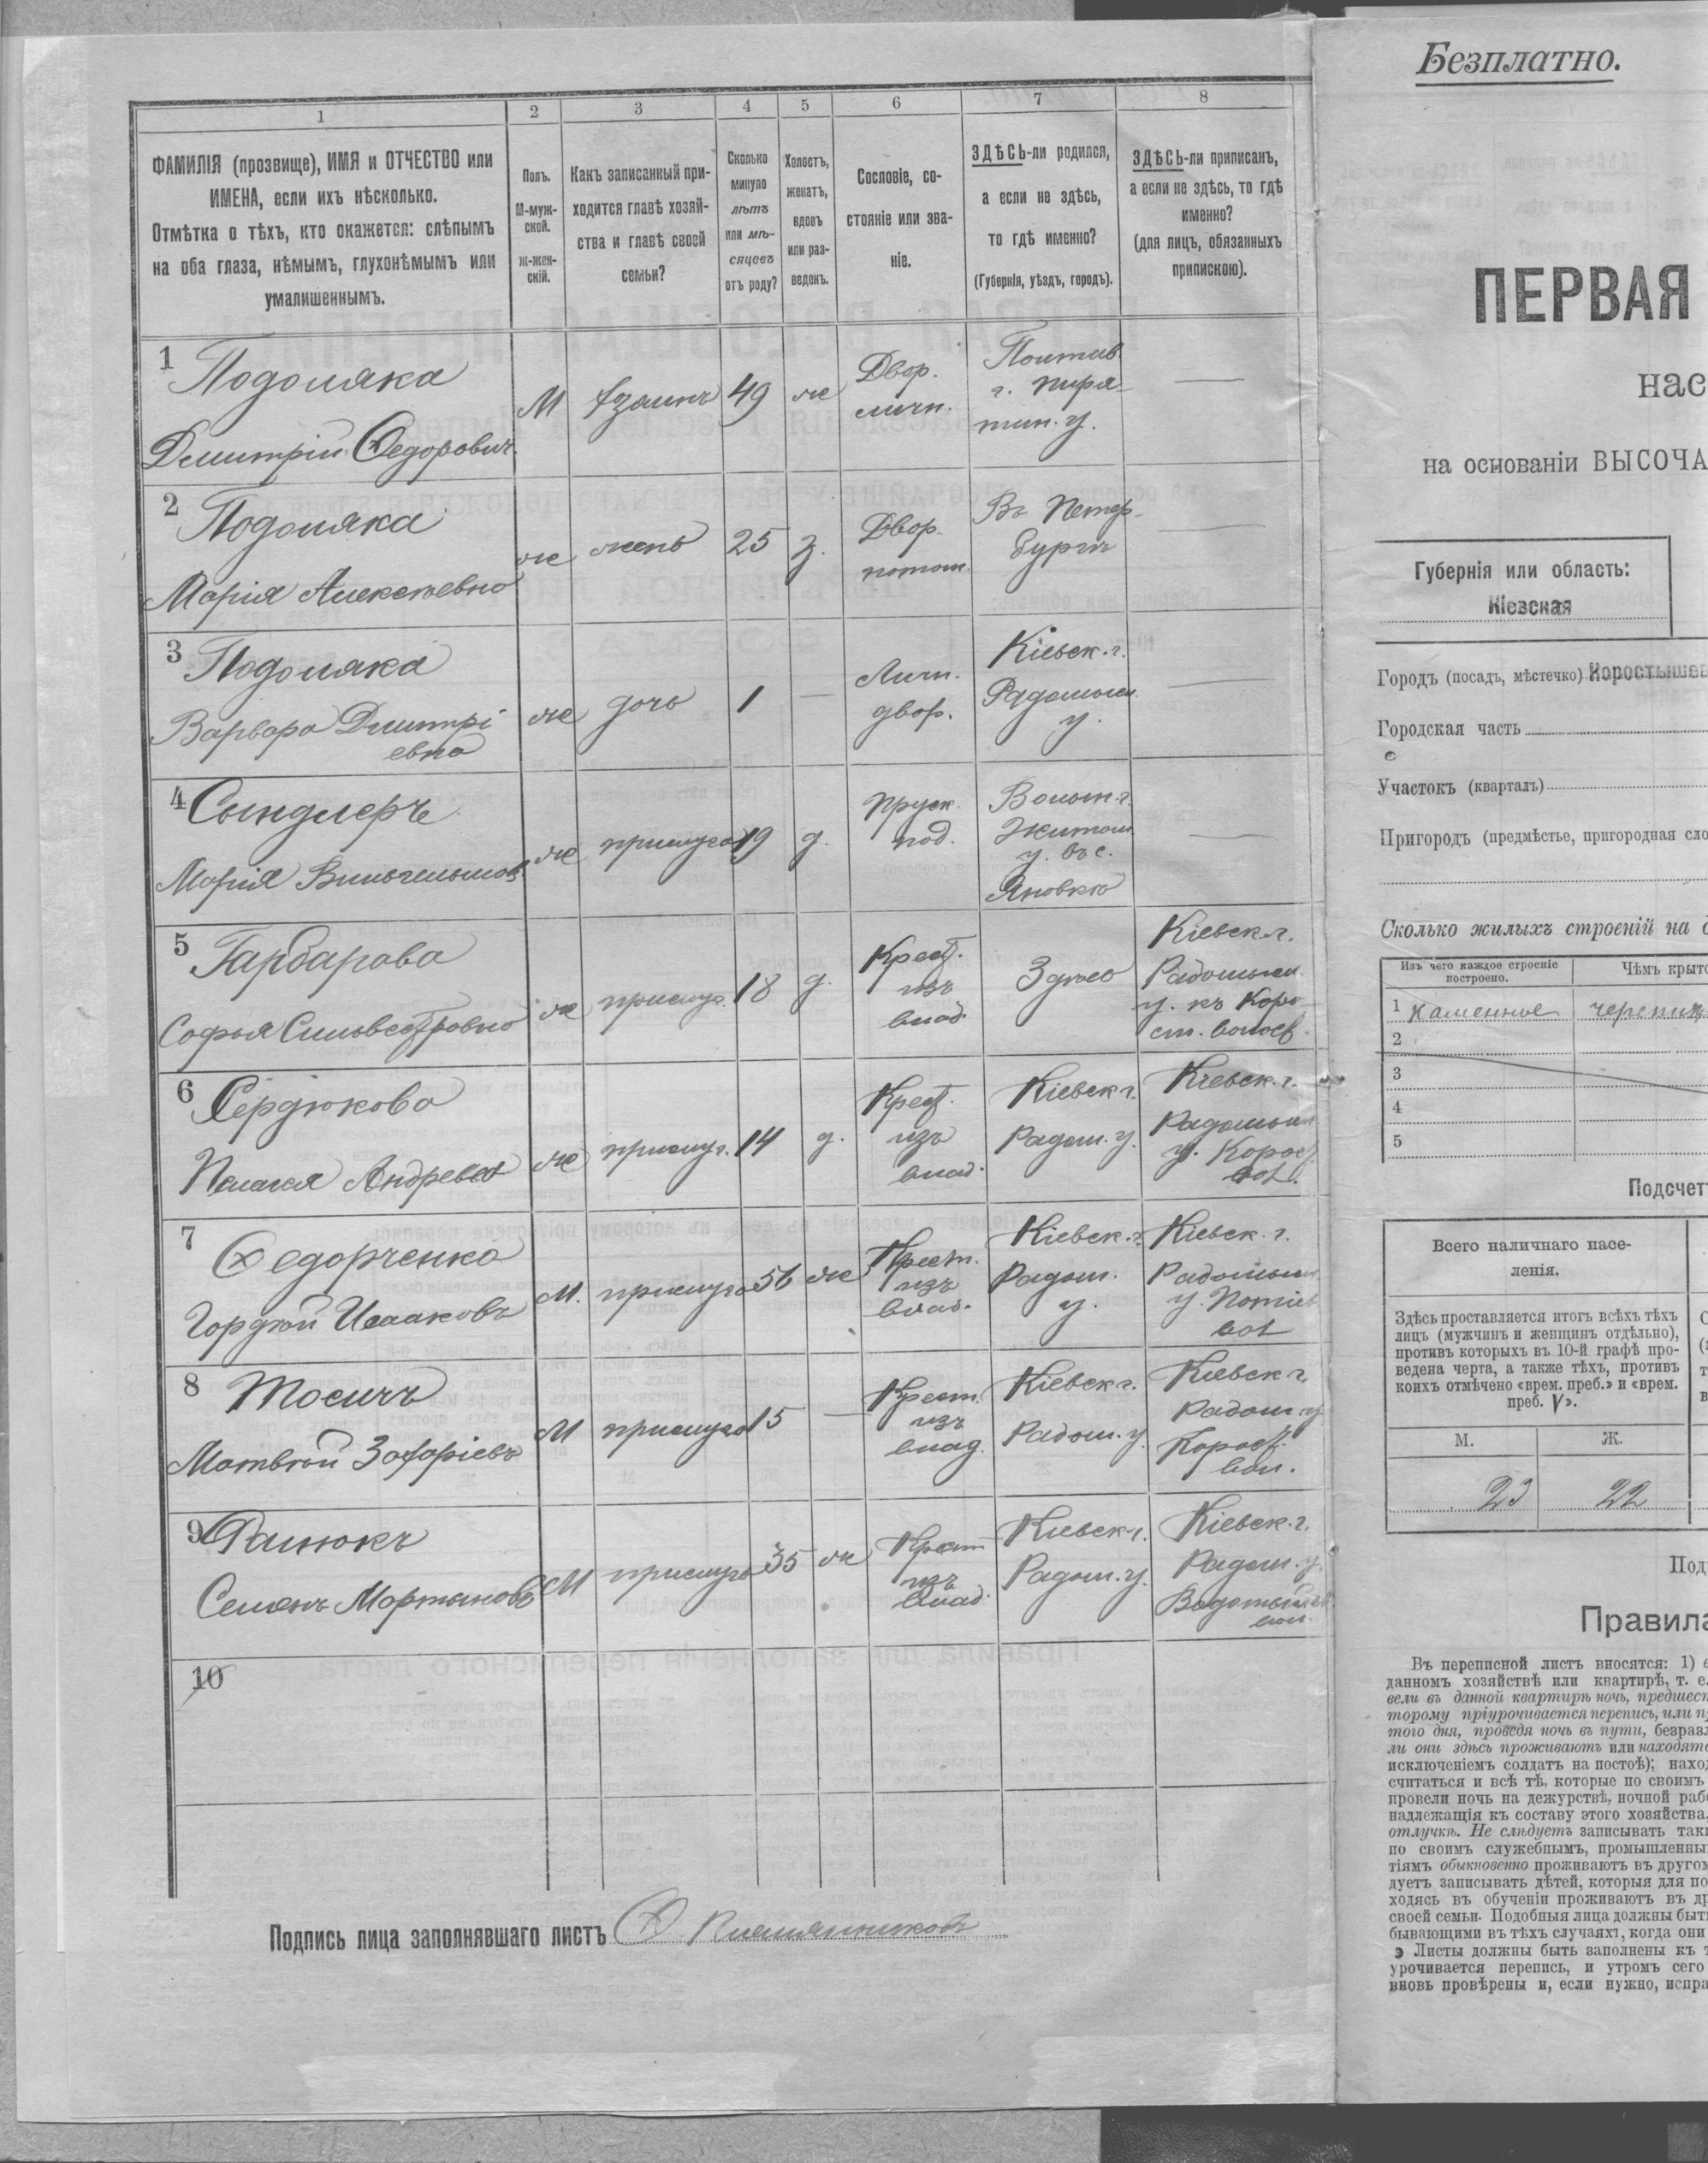 1 2 3 4 5 6 7 8
ФАМИЛІЯ (прозвище), ИМЯ и ОТЧЕСТВО или
ИМЕНА, если ихъ нѣсколько.
Отмѣтка о тѣхъ, кто окажется: слѣпымъ
на оба глаза, нѣмымъ, глухонѣмымъ или
умалишеннымъ.
Полъ.
М-муж-
ской.
ж-жен-
скій.
Какъ записанный при-
ходится главѣ хозяй-
ства и главѣ своей
семьи?
Сколько
минуло
лѣтъ
или мѣ-
сяцевъ
отъ роду?
Холостъ,
женатъ,
вдовъ
или раз-
веденъ.
Сословіе, со-
стояніе или зва-
ніе.
ЗДѢСЬ-ли родился,
а если не здѣсь,
то гдѣ именно?
(Губернія, уѣздъ, городъ).
ЗДѢСЬ-ли приписанъ,
а если не здѣсь, то гдѣ
именно?
(для лицъ, обязанныхъ
припискою).
1 Подоляка
Дмитрій Ѳедорович.
М
хозяинъ
49
ж
Двор.
личн.
Полтав
г. Пиря-
тин. у.
2 Подоляка
Марія Алексѣевна
ж
жена
25
з.
Двор.
потом.
Въ Петер-
бургѣ
3 Подоляка
Варвара Дмитрі
евна
ж
дочь
1
Личн.
двор.
Кіевск. г.
Радомысл.
у.
4
Марія Вильгельмов.
ж
прислуга
19
д.
Прусск.
под.
Волын. г.
Житом.
у. въ с.
Яновка
5 Гарбарова
Софья Сильвестровна
ж
прислуг.
18
д.
Крест.
изъ
влад.
Здѣсь
Кіевск. г.
Радомысл.
у. къ Коро
ст. волост.
6 Сердюкова
Пелагея Андреева
ж
прислуг.
14
д.
Крест.
изъ
влад.
Кіевск г.
Радом. у.
Кіевск. г.
Радомысл
у. Корост.
вол.
7 Ѳедорченко
Гордѣй Исааковъ
М.
прислуга
56
ж
Крест.
изъ
влад.
Кіевск. г.
Радом.
у.
Кіевск. г.
Радомысл.
у. Потіев
вол
8
Матвѣй Захаріевъ
М
прислуга
15
Крест.
изъ
влад.
Кіевск г.
Радом. у.
Кіевск г.
Радом у
Корост.
вол.
9
Семенъ Мартыновъ
М
прислуга
35
ж
Крест
изъ
влад.
Кіевск г.
Радом. у.
Кіевск. г.
Радом. у.
вол.
10
Подпись лица заполнявшаго листъ
Безплатно.
ПЕРВАЯ
нас
на основаніи ВЫСОЧА
Губернія или область:
Кіевская
Городъ (посадъ, мѣстечко) Коростышев
Городская часть
Участокъ (кварталъ)
Пригородъ (предмѣстье, пригородная сло
Сколько жилыхъ строеній на д
Изъ чего каждое строеніе
построено.
Чѣмъ крыто
1 каменное черепиц
2
3
4
5
Подсчет
Всего наличнаго насе-
ленія.
Здѣсь проставляется итогъ всѣхъ тѣхъ
лицъ (мужчинъ и женщинъ отдѣльно),
противъ которыхъ въ 10-й графѣ про-
ведена черта, а также тѣхъ, противъ
коихъ отмѣчено «врем. преб.» и «врем.
преб. V».
М. Ж.
23 22
Под
Правила
Въ переписной листъ вносятся: 1) в
данномъ хозяйствѣ или квартирѣ, т. е.
вели въ данной квартирѣ ночь, предшест
торому пріурочивается перепись, или пр
того дня, проведя ночь въ пути, безраз
ли они здѣсь проживаютъ или находятс
исключеніемъ солдатъ на постоѣ); наход
считаться и всѣ тѣ, которые по своимъ
провели ночь на дежурствѣ, ночной раб
надлежащія къ составу этого хозяйства,
отлучкѣ. Не слѣдуетъ записывать таки
по своимъ служебнымъ, промышленны
тіямъ обыкновенно проживаютъ въ другом
дуетъ записывать дѣтей, которыя для по
ходясь въ обученіи проживаютъ въ др
своей семьи. Подобныя лица должны быт
бывающими въ тѣхъ случаяхъ, когда они
Листы должны быть заполнены къ т
урочивается перепись, и утромъ сего
вновь провѣрены и, если нужно, испра